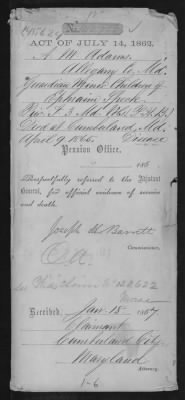 ACT OF JULY 14, 1862.
A. M. Adams.
Allegany Co Md.
Guardian Minor Children of
Ephraim
Died at Cumberland, Md.
April 9. 1865. Disease
Pension Office,
186
Respectfully referred to the Adjutant
General, for official evidence of service
and death.
Joseph H Barrett
Commissioner.
Received, Jan. 18 1867
Claimant
Cumberland City
Maryland
Attorney